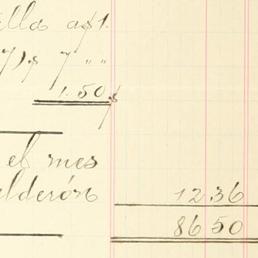 illa a $1.
7) $ 7 " "
1.50 $
el mes
alderón 12 36
86 50